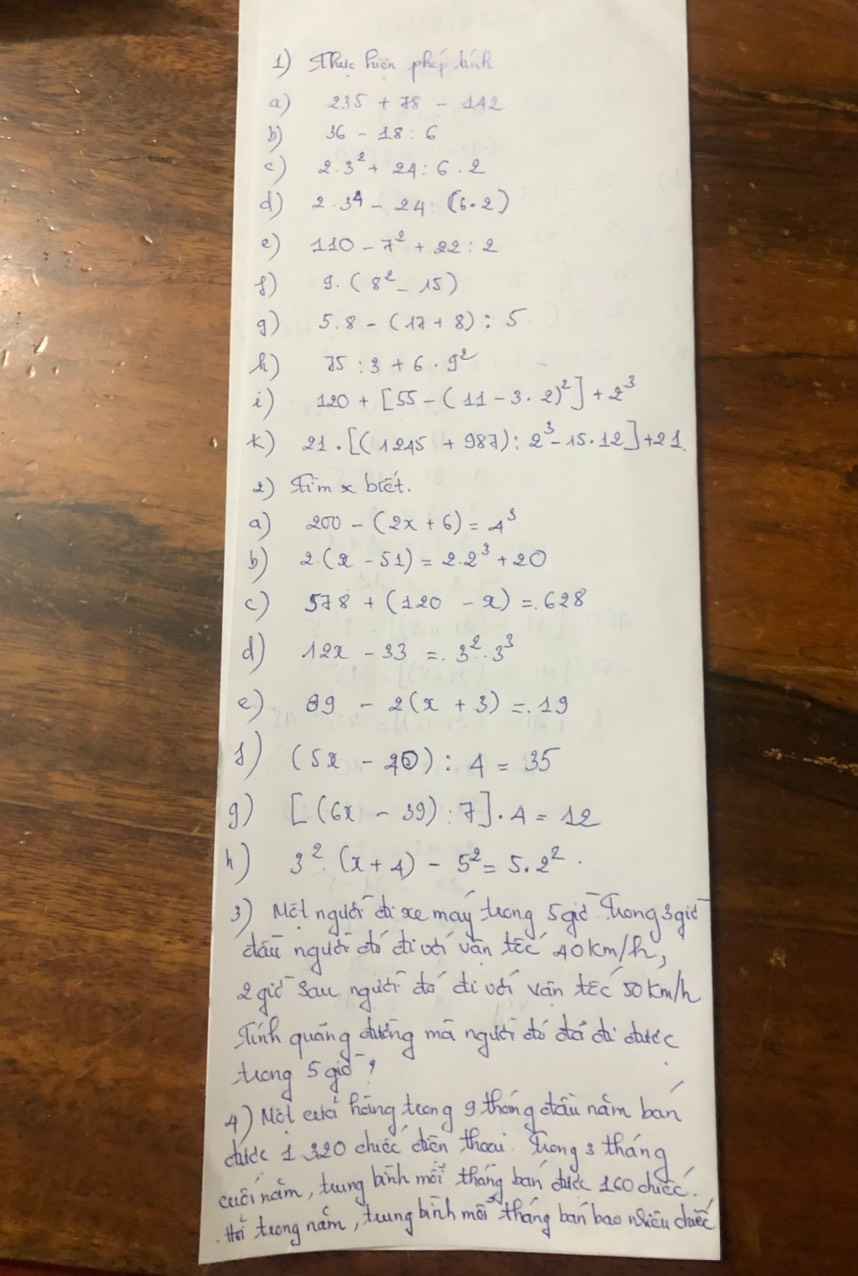 1) Thực hiện phép tính
a) 235 + 78 - 142
b) 36 - 18 : 6
c) 2.3² + 24 : 6 . 2
d) 2.3⁴ - 24 : (6.2)
e) 110 - 7² + 22 : 2
f) 9. (8² - 15)
g) 5.8 - (17 + 8) : 5
h) 75 : 3 + 6 . 9²
i) 120 + [55 - (11 - 3.2)²] + 2³
k) 21.[(1245 + 987) : 2³ - 15.12] + 21.
2) Tìm x biết.
a) 200 - (2x + 6) = 4³
b) 2.(x - 51) = 2.2³ + 20
c) 578 + (120 - x) = 628
d) 12x - 33 = 3².3³
e) 89 - 2(x + 3) = 19
f) (5x - 20) : 4 = 35
g) [(6x - 39) : 7].4 = 12
h) 3².(x + 4) - 5² = 5.2².
3) Một người đi xe máy trong 5 giờ. Trong 3 giờ
đầu người đó đi với vận tốc 40 km/h,
2 giờ sau người đó đi với vận tốc 50 km/h
Tính quãng đường mà người đó đã đi được
trong 5 giờ?
4) Một cửa hàng trong 9 tháng đầu năm bán
được 1 320 chiếc điện thoại. Trong 3 tháng
cuối năm, trung bình mỗi tháng bán được 160 chiếc.
Hỏi trong năm, trung bình mỗi tháng bán bao nhiêu chiếc